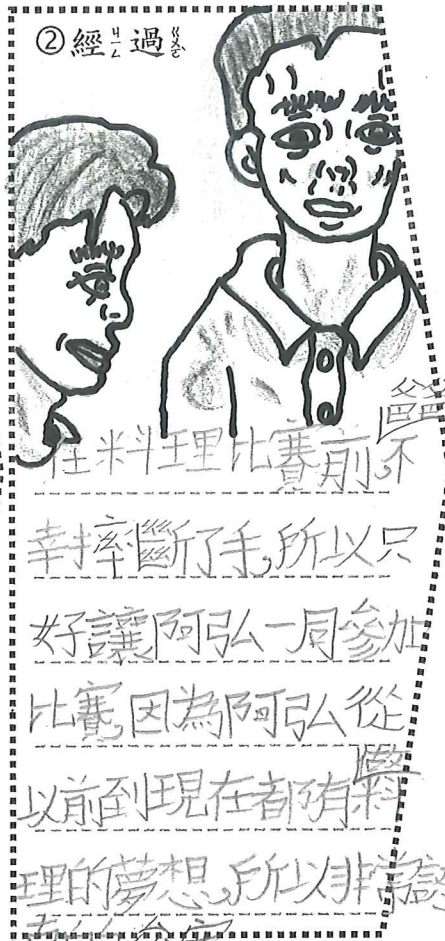 ②經ㄐㄧㄥ過ㄍㄨㄛˋ
在料理比賽前,爸爸不
幸摔斷了手,所以只
好讓阿弘一同參加
比賽,因為阿弘從
以前到現在都有料
理的夢想,所以非常認
真的